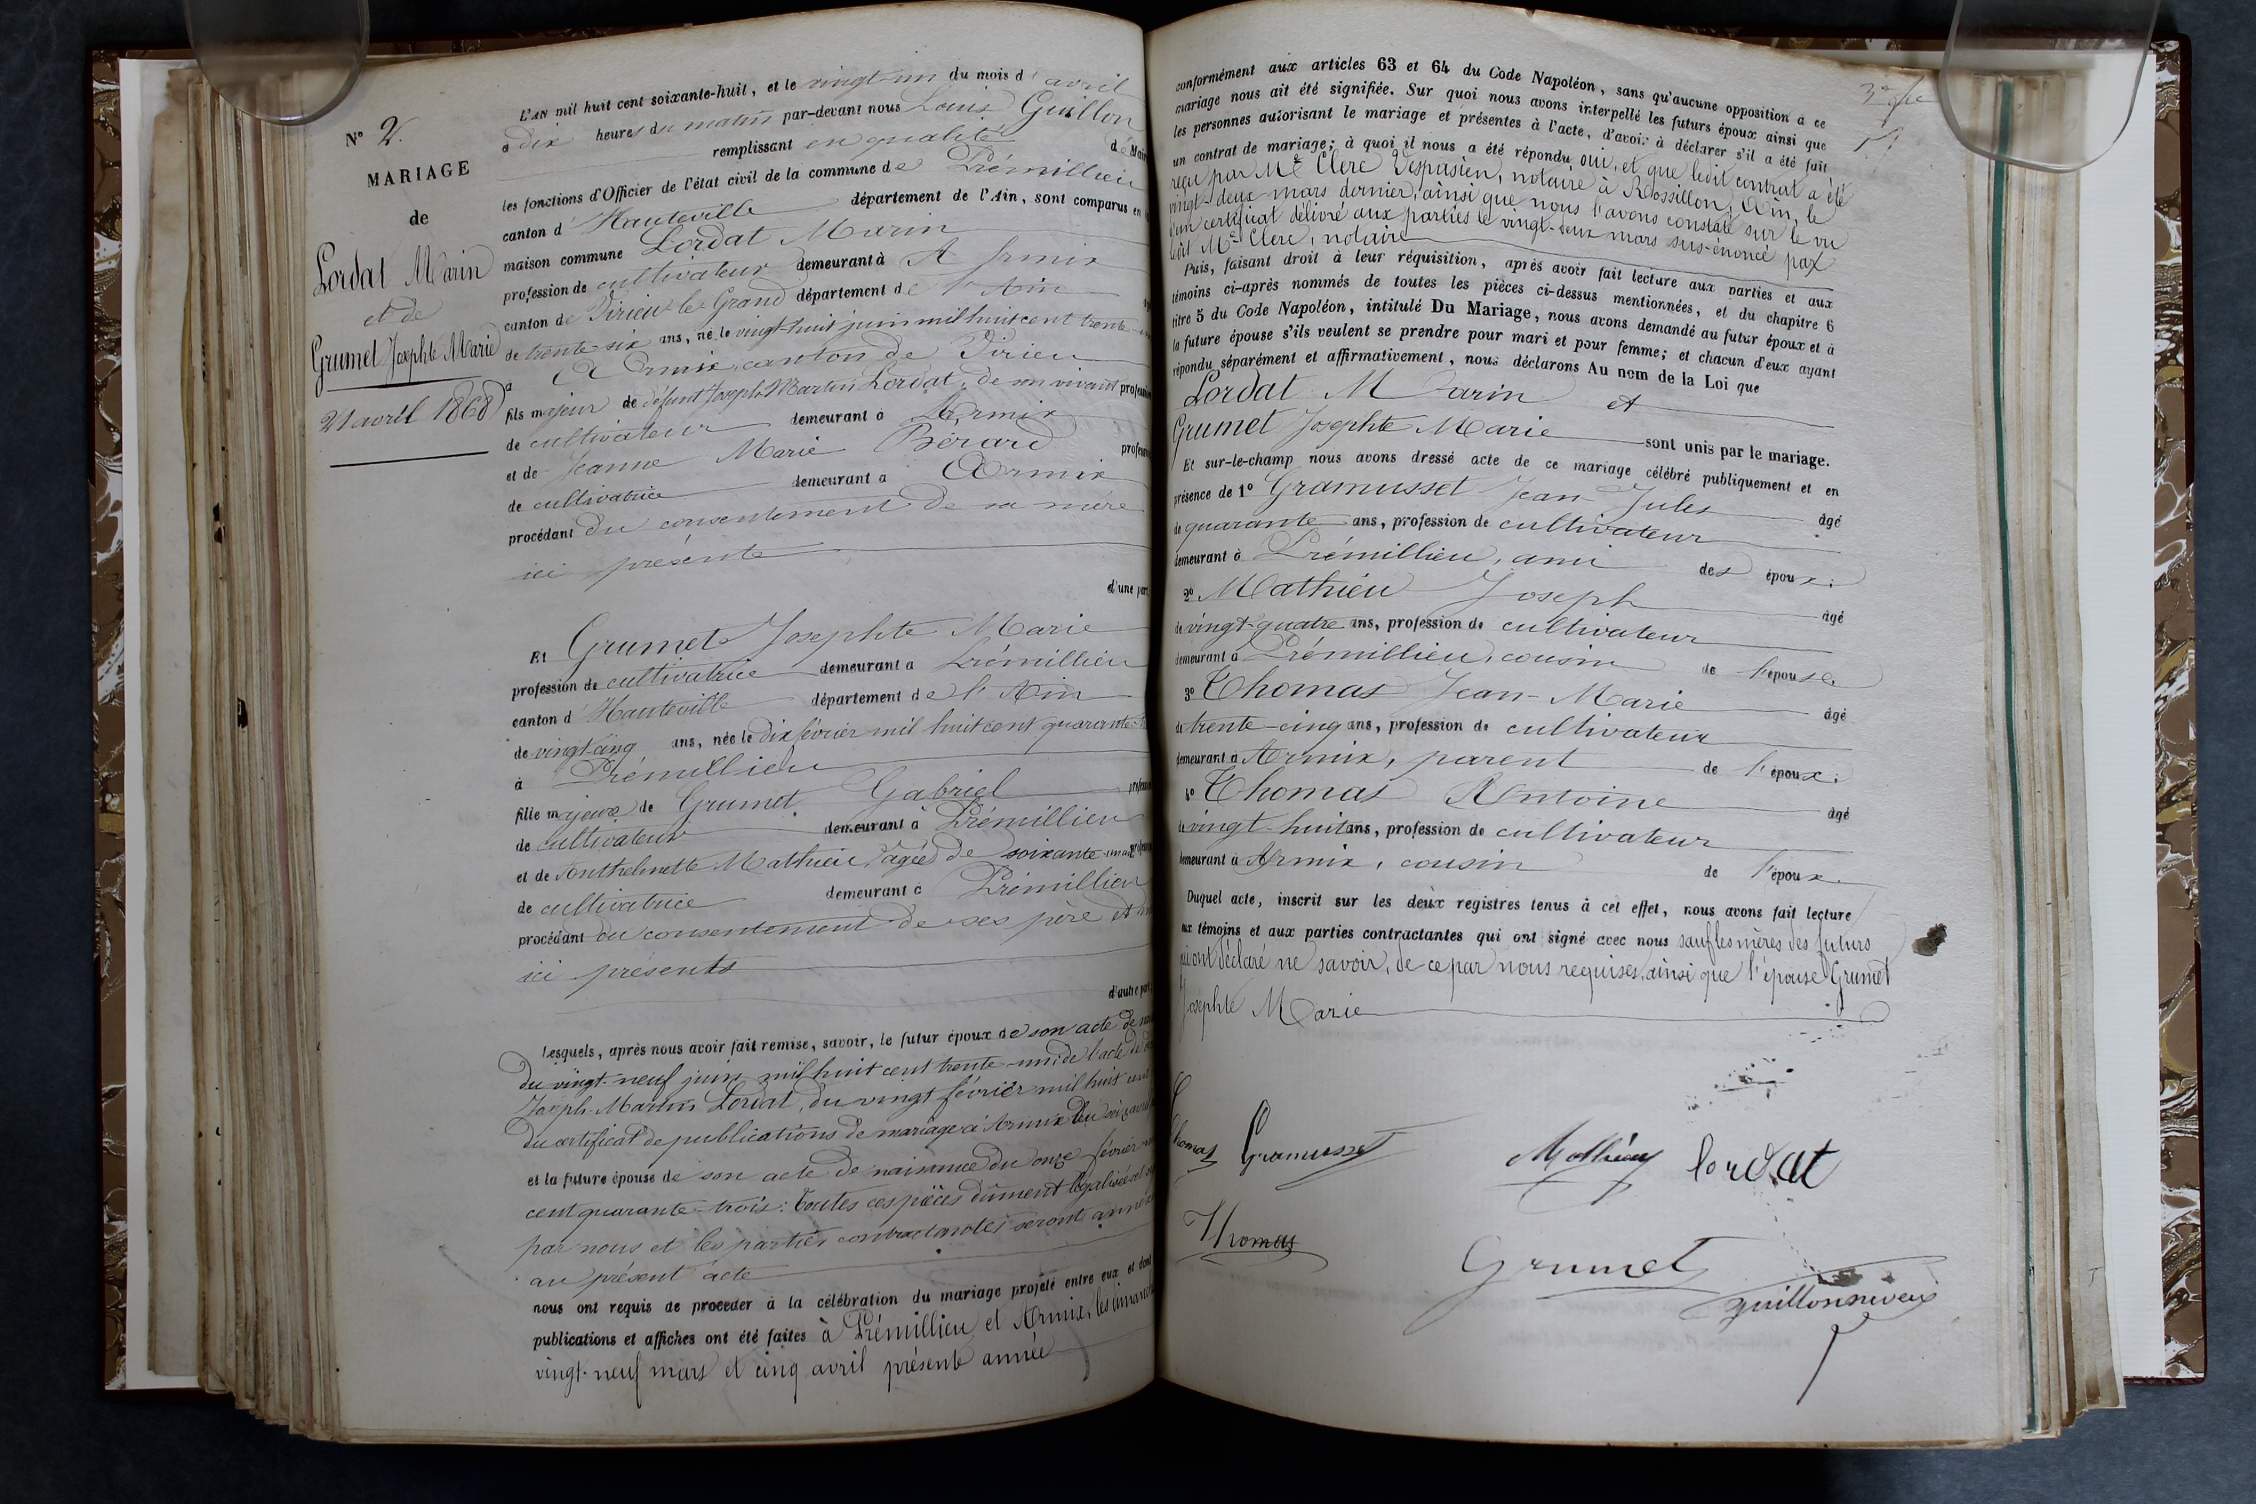 N° 2.
MARIAGE
de
Lordat Marin
et de
Grumet Josephte Marie
21 avril 1868
L'AN mil huit cent soixante-huit, et le vingt-un du mois d'avril
à dix heures du matin par-devant nous Louis Guillon
remplissant en qualité de Maire
les fonctions d'Officier de l'état civil de la commune de Prémillieu
canton d'Hauteville département de l'Ain, sont comparus en
maison commune Lordat Marin
profession de cultivateur demeurant à Armix
canton de Virieu-le-Grand département de l'Ain
de trente-six ans, né le vingt-huit juin mil huit cent trente-
à Armix, canton de Virieu
fils majeur de défunt Joseph Martin Lordat, de son vivant profession
de cultivateur demeurant à Armix
et de Jeanne Marie Bérard profession
de cultivatrice demeurant à Armix
procédant du consentement de sa mère
ici présente
d'une part,
Et Grumet Josephte Marie
profession de cultivatrice demeurant à Prémillieu
canton d'Hauteville département de l'Ain
de vingt-cinq ans, née le dix février mil huit cent quarante-
à Prémillieu
fille majeure de Grumet Gabriel profession
de cultivateur demeurant à Prémillieu
et de Anthelmette Mathieu, âgée de soixante-un ans
de cultivatrice demeurant à Prémillieu
procédant du consentement de ses père et
ici présents
d'autre part,
Lesquels, après nous avoir fait remise, savoir, le futur époux de son acte de
du vingt-neuf juin mil huit cent trente-un; de l'acte de
Joseph-Martin Lordat, du vingt février mil huit cent
du certificat de publications de mariage à Armix du
et la future épouse de son acte de naissance du onze février
cent quarante-trois: Toutes ces pièces dûment légalisées et
par nous et les parties contractantes seront annexées
au présent acte
nous ont requis de procéder à la célébration du mariage projeté entre eux et dont
publications et affiches ont été faites à Prémillieu et Armix, les dimanches
vingt-neuf mars et cinq avril présente année
conformément aux articles 63 et 64 du Code Napoléon, sans qu'aucune opposition à ce
mariage nous ait été signifiée. Sur quoi nous avons interpellé les futurs époux ainsi que
les personnes autorisant le mariage et présentes à l'acte, d'avoir à déclarer s'il a été fait
un contrat de mariage; à quoi il nous a été répondu oui, et que ledit contrat a été
reçu par Me Clerc Vespasien, notaire à Rossillon, Ain, le
vingt-deux mars dernier, ainsi que nous l'avons constaté sur le vu
d'un certificat délivré aux parties le vingt-deux mars sus-énoncé par
ledit Me Clerc, notaire
Puis, faisant droit à leur réquisition, après avoir fait lecture aux parties et aux
témoins ci-après nommés de toutes les pièces ci-dessus mentionnées, et du chapitre 6
titre 5 du Code Napoléon, intitulé Du Mariage, nous avons demandé au futur époux et à
la future épouse s'ils veulent se prendre pour mari et pour femme; et chacun d'eux ayant
répondu séparément et affirmativement, nous déclarons Au nom de la Loi que
Lordat Marin et
Grumet Josephte Marie sont unis par le mariage.
Et sur-le-champ nous avons dressé acte de ce mariage célébré publiquement et en
présence de 1° Gramusset Jean Jules âgé
de quarante ans, profession de cultivateur
demeurant à Prémillieu, ami des époux;
2° Mathieu Joseph âgé
de vingt-quatre ans, profession de cultivateur
demeurant à Prémillieu, cousin de l'épouse
3° Thomas Jean-Marie âgé
de trente-cinq ans, profession de cultivateur
demeurant à Armix, parent de l'époux;
4° Thomas Antoine âgé
de vingt-huit ans, profession de cultivateur
demeurant à Armix, cousin de l'époux.
Duquel acte, inscrit sur les deux registres tenus à cet effet, nous avons fait lecture
aux témoins et aux parties contractantes qui ont signé avec nous sauf les mères des futurs
qui ont déclaré ne savoir, de ce par nous requises, ainsi que l'épouse Grumet
Josephte Marie
Thomas Gramusset Mathieu lordat
Thomas
Grumet